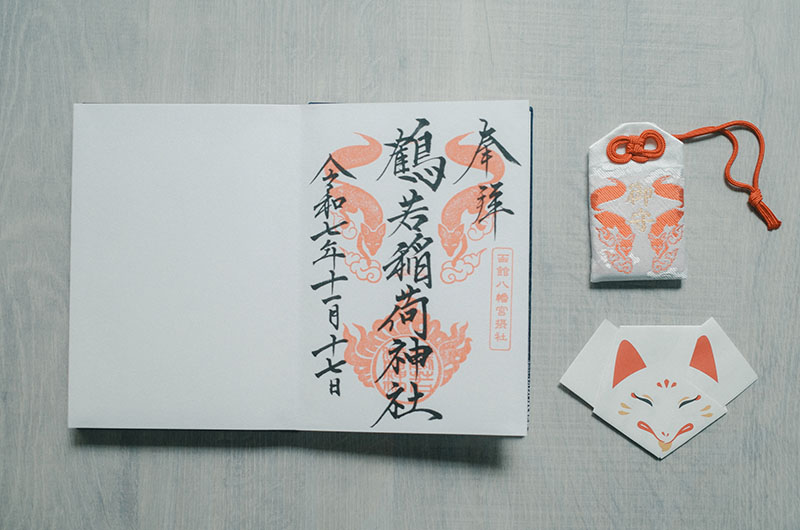 奉拝
函館八幡宮摂社
鶴若稲荷神社
令和七年十一月十七日
御守